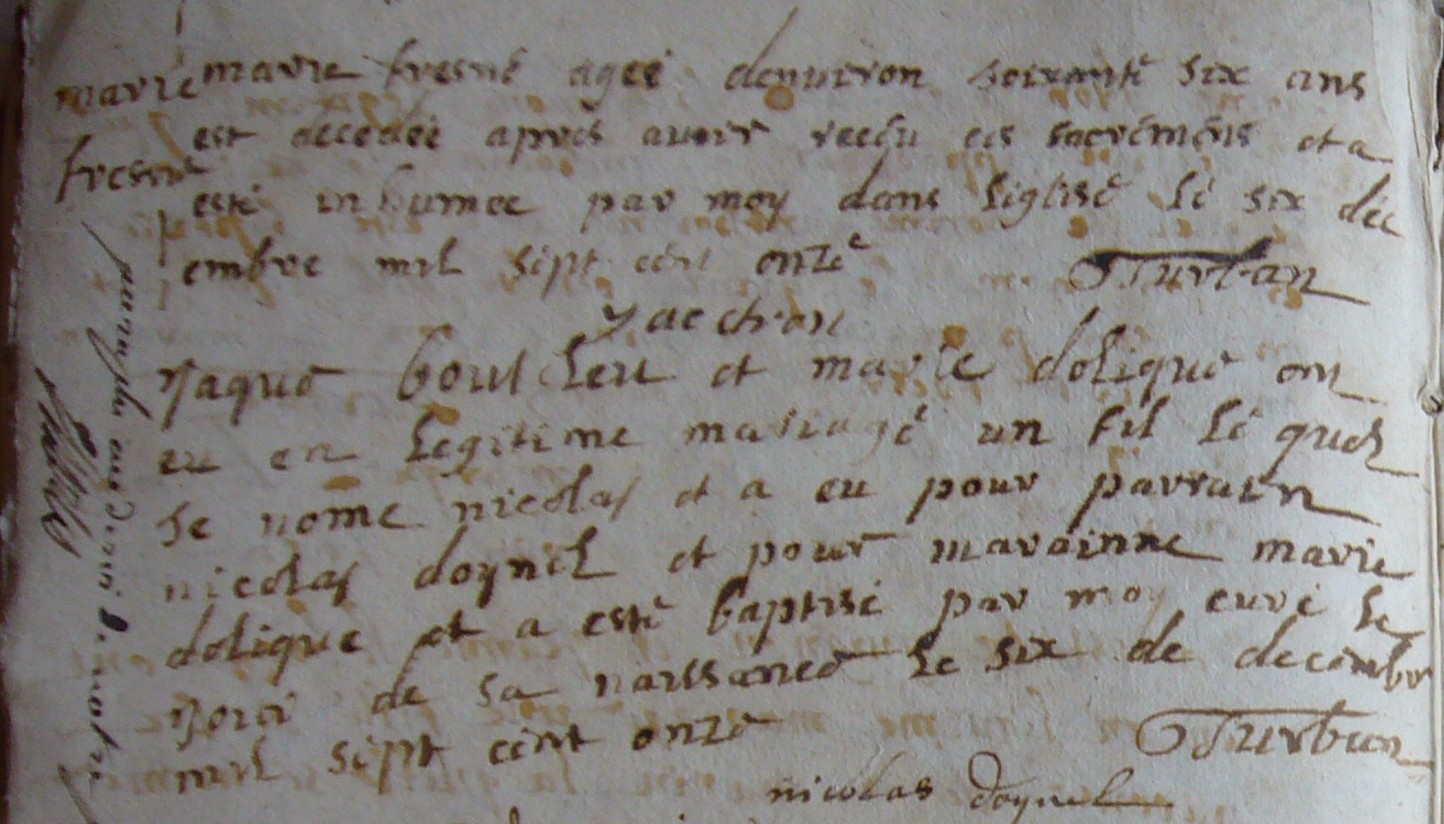 marie
fresné
marie fresné ageé denuiron soixanté six ans
est decedeé aprés auoir recçu ces sacréméns et a
esté inhumee par moy dans léglisé lé six déc
embre mil sépt cént onzé
Turban
Jaqué boul lert et marie doliqué ont
eu en legitime mariagé un fil lé quel
se nome nicolas et a eu pour parrain
nicolas doynel et pour marainne marie
dolique et a esté baptisé par moy curé le
de sa naissancé le six de decémbre
mil sépt cént onzé
Turban
nicolas Doynel